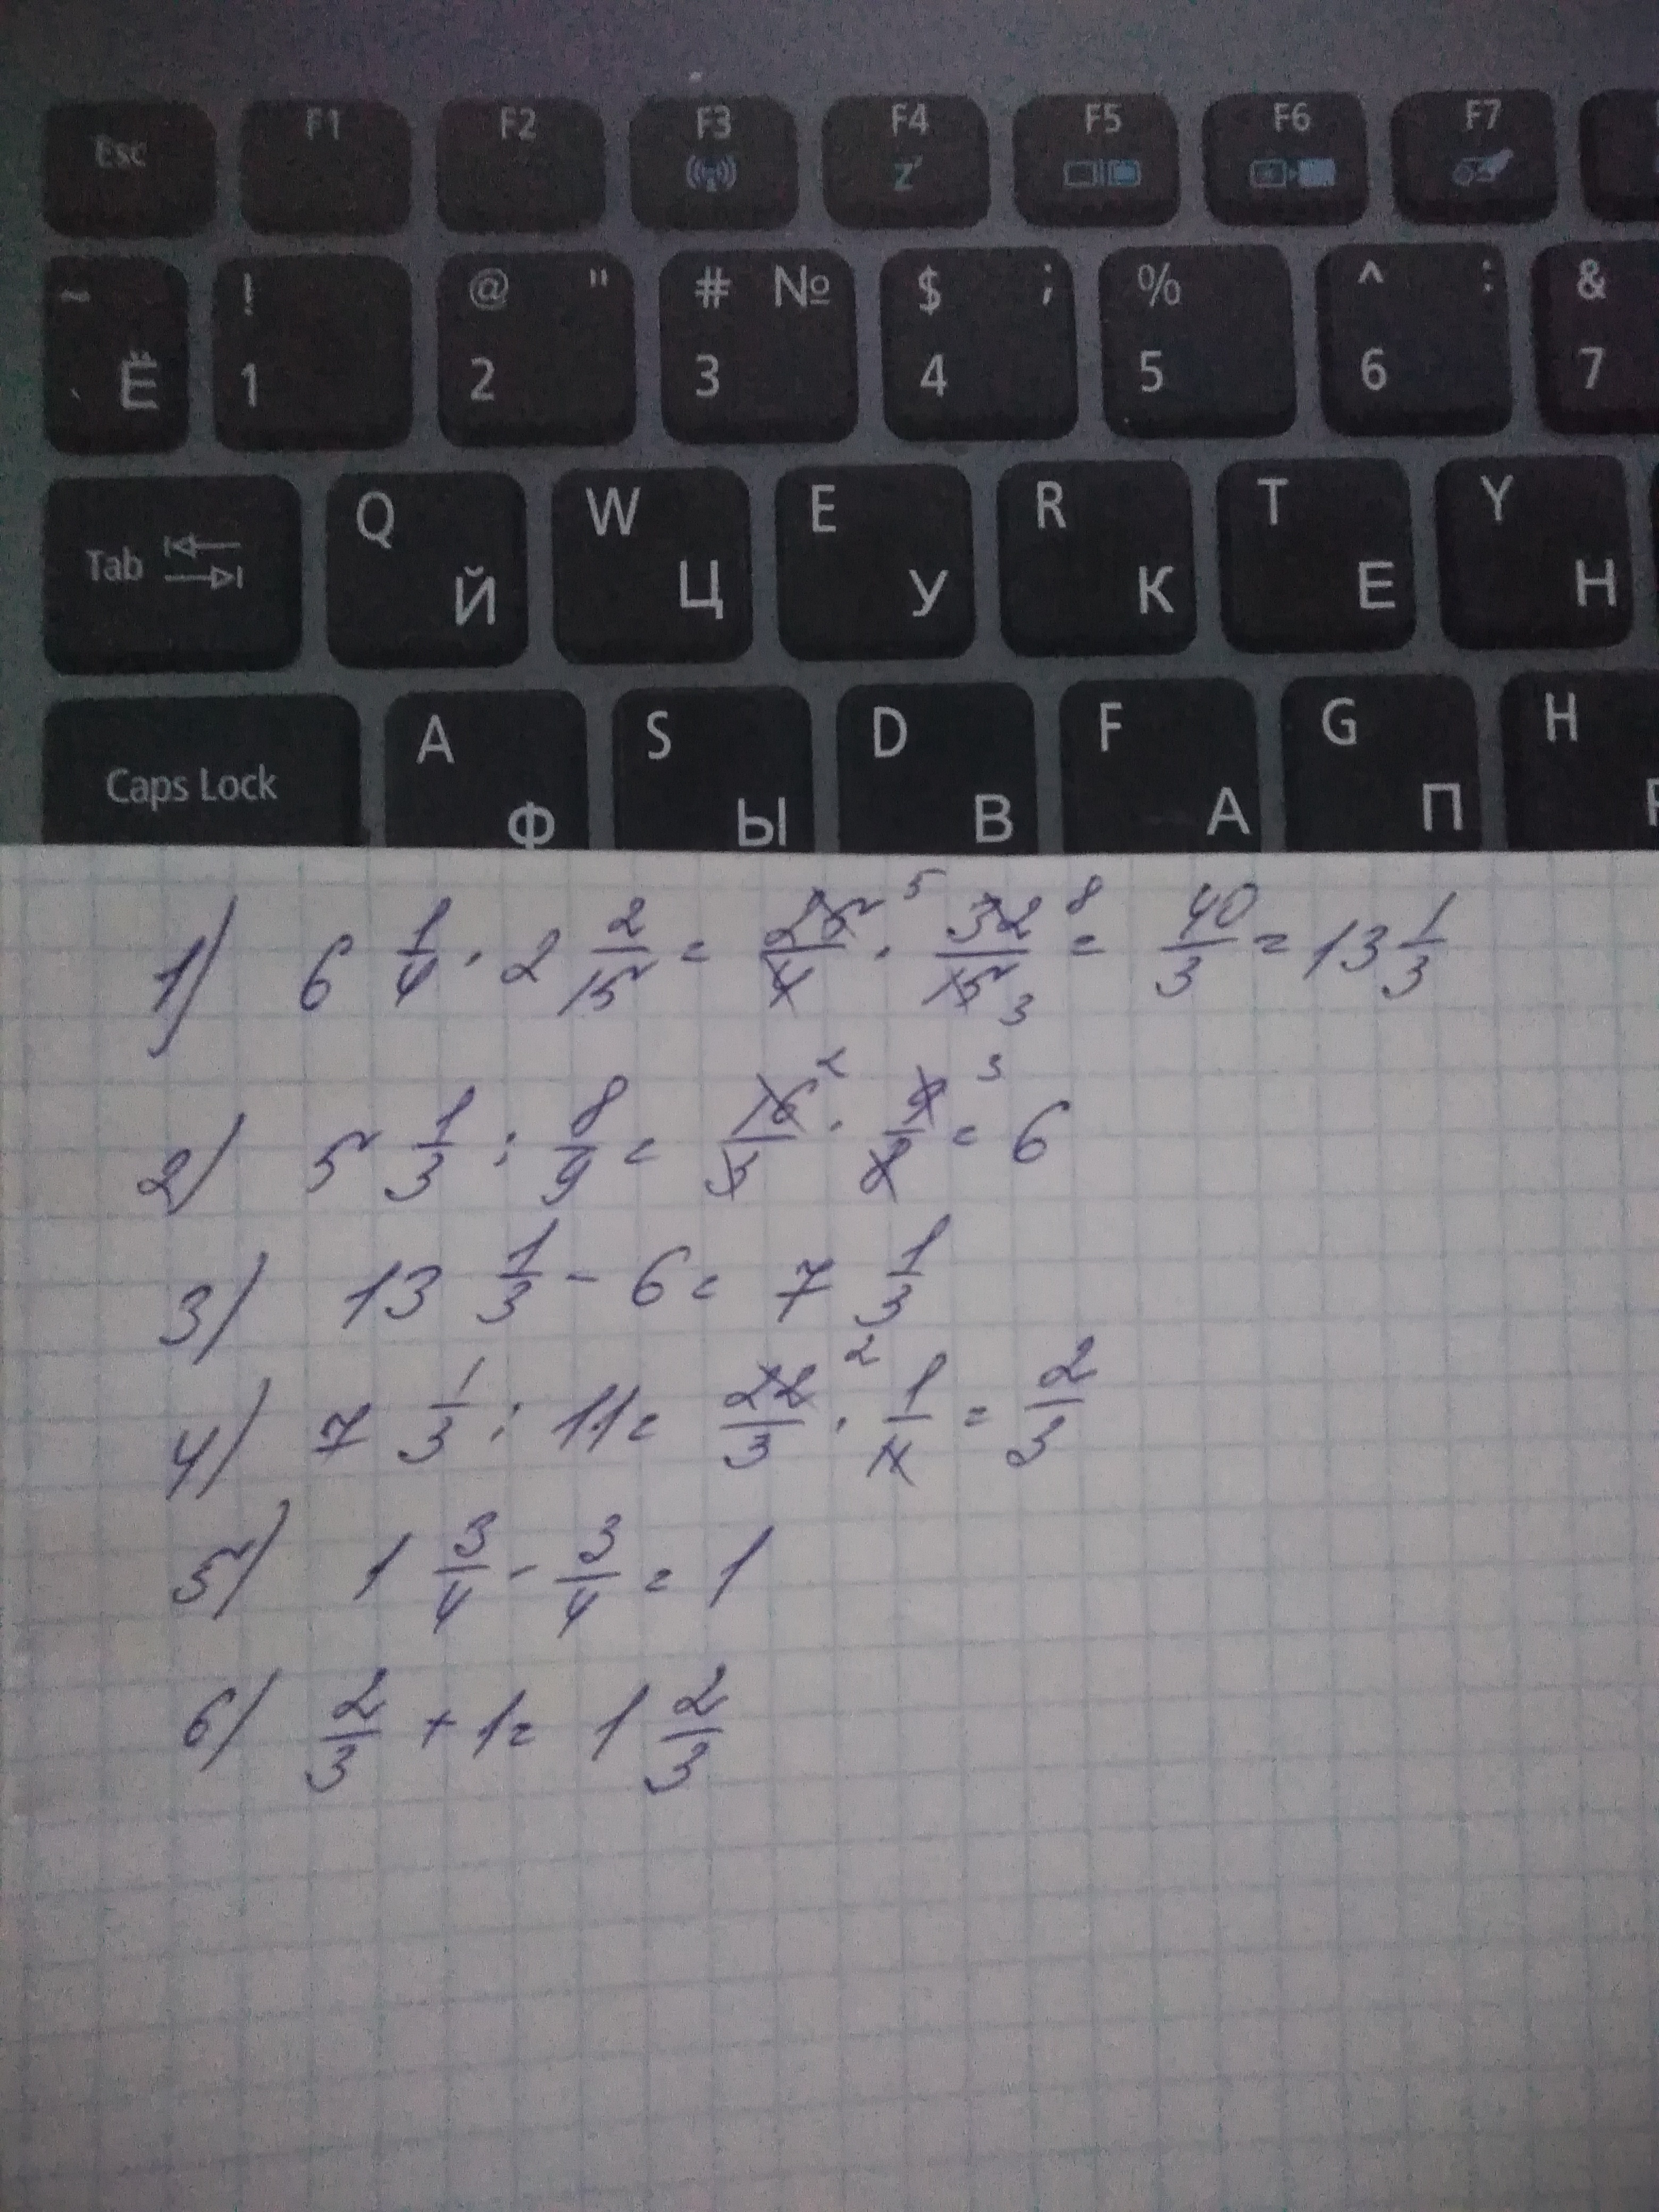 Esc F1 F2 F3 F4 F5 F6 F7
~ Ё ! 1 @ " 2 # № 3 $ ; 4 % 5 ^ : 6 & 7
Tab Q Й W Ц E У R К T Е Y Н
Caps Lock A Ф S Ы D В F А G П H
1) 6 1/4 · 2 2/15 = 25/4 5 · 32/15 8 3 = 40/3 = 13 1/3
2) 5 1/3 : 8/9 = 16/3 2 · 9/8 3 = 6
3) 13 1/3 - 6 = 7 1/3
4) 7 1/3 : 11 = 22/3 2 · 1/11 = 2/3
5) 1 3/4 - 3/4 = 1
6) 2/3 + 1 = 1 2/3